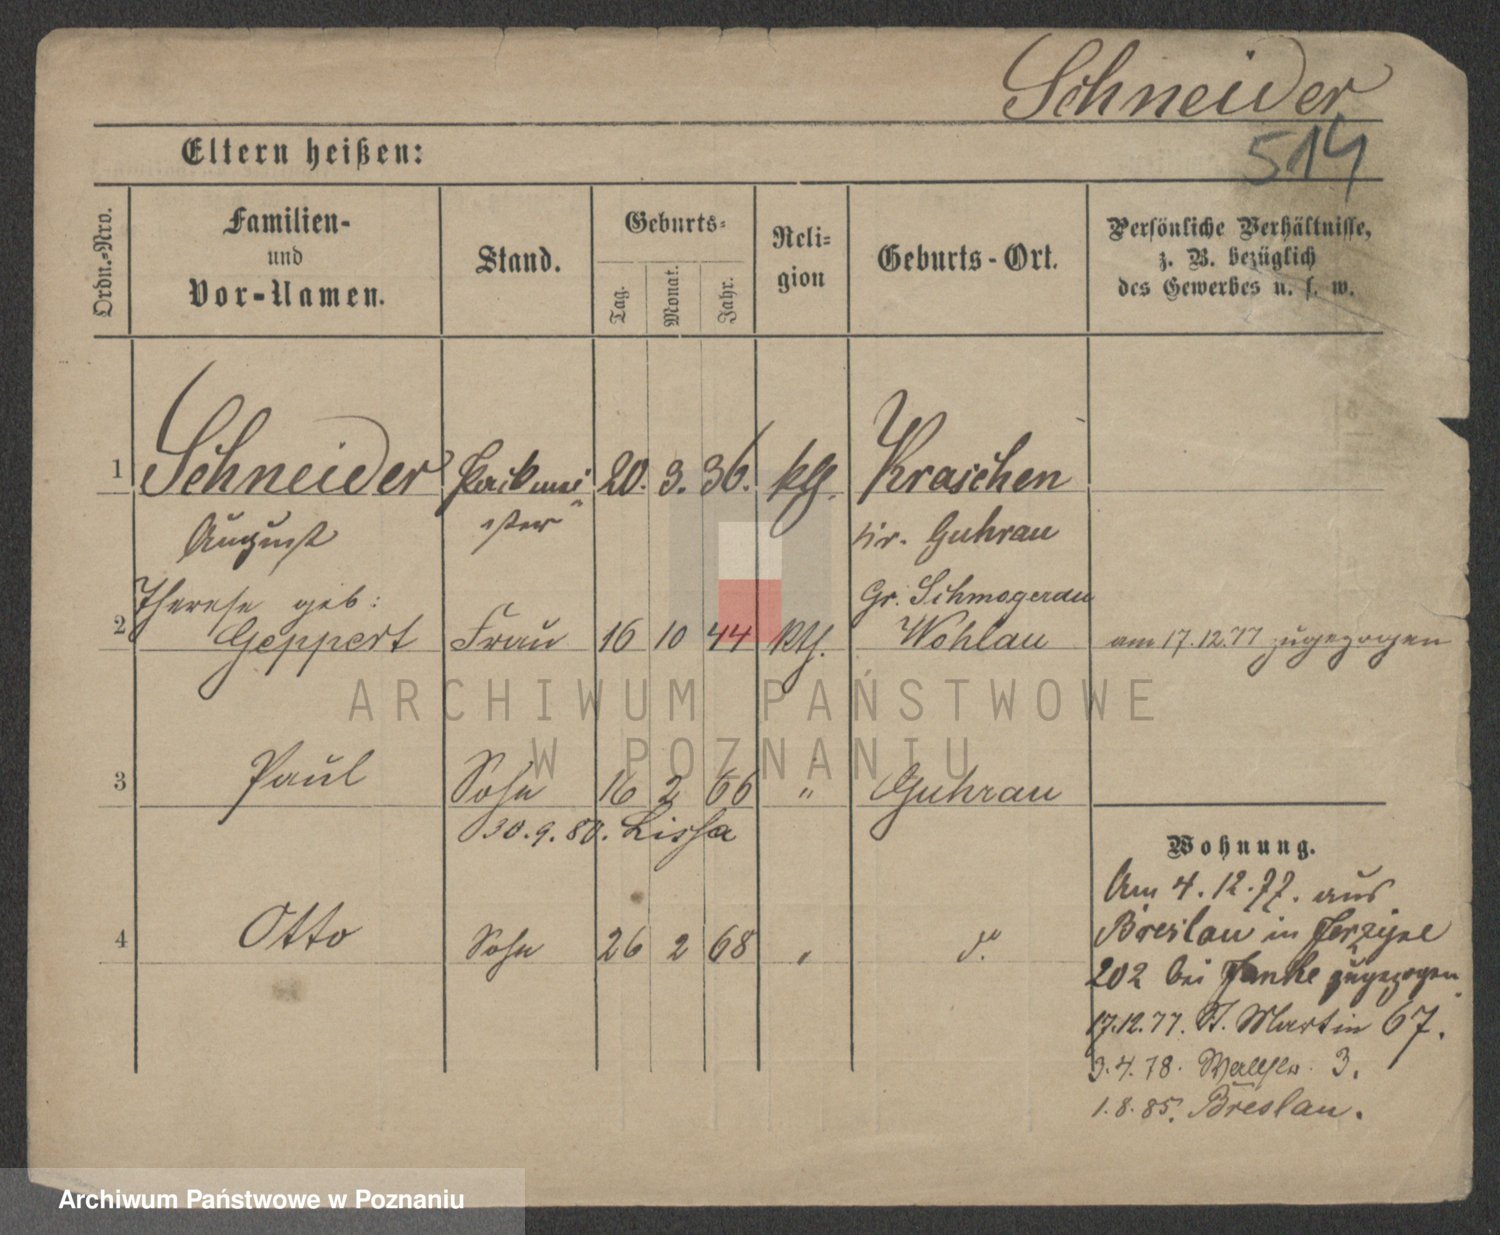 Schneider
514
Eltern heißen:
Ordn.-Nro.
Familien-
und
Vor-Namen.
Stand.
Geburts-
Tag.
Monat.
Jahr.
Reli-
gion
Geburts-Ort.
Persönliche Verhältnisse,
z. B. bezüglich
des Gewerbes u. s. w.
1 Schneider Packmei 20. 3. 36. ktl. Kraschen
August ster Kr. Guhrau
Therese geb: Gr. Schmogerau
2 Geppert Frau 16 10 44 kth. Wohlau am 17.12.77 zugezogen
ARCHIWUM PAŃSTWOWE
W POZNANIU
3 Paul Sohn 16 2 66 " Guhrau
30.9.80. Lissa
Wohnung.
Am 4.12.77. aus
4 Otto Sohn 26 2 68 " do.
Breslau in Jerzyce
202 bei Janke zugezogen
17.12.77. St. Martin 67.
3.4.78. 3.
1.8.85. Breslau.
Archiwum Państwowe w Poznaniu